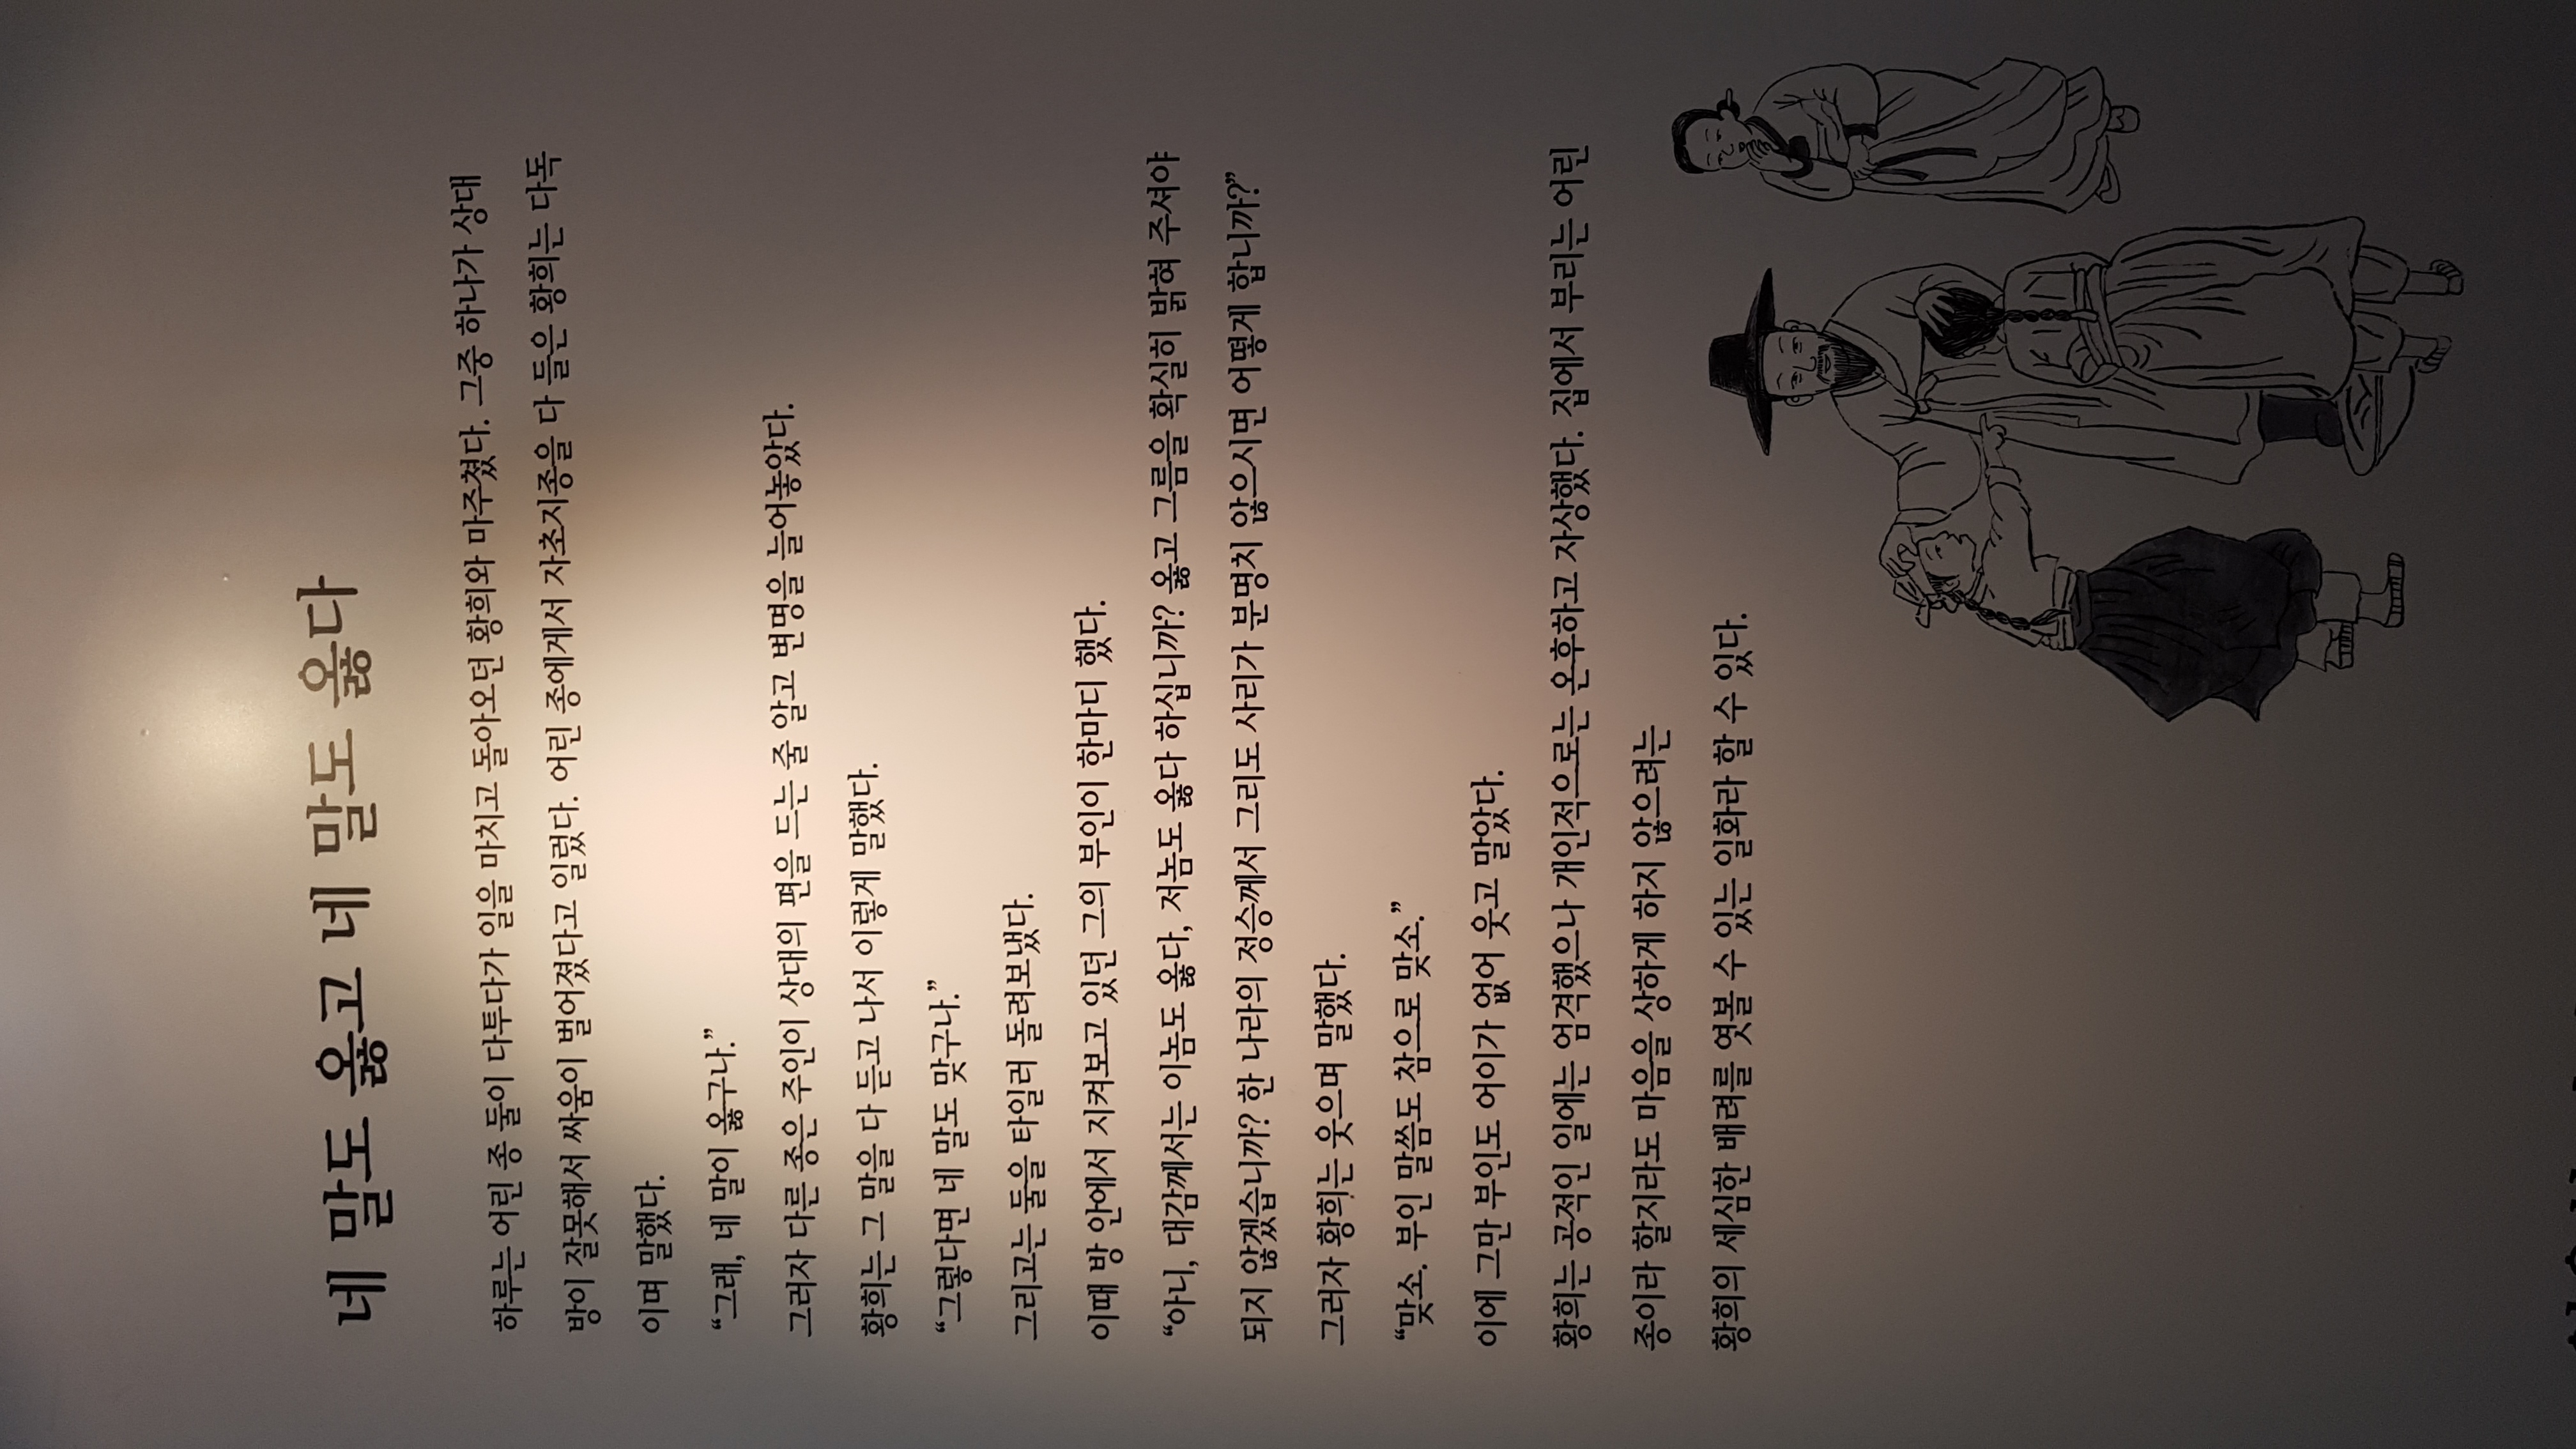 네 말도 옳고 네 말도 옳다
하루는 어린 종 둘이 다투다가 일을 마치고 돌아오던 황희와 마주쳤다. 그중 하나가 상대
방이 잘못해서 싸움이 벌어졌다고 일렀다. 어린 종에게서 자초지종을 다 들은 황희는 다독
이며 말했다.
“그래, 네 말이 옳구나.”
그러자 다른 종은 주인이 상대의 편을 드는 줄 알고 변명을 늘어놓았다.
황희는 그 말을 다 듣고 나서 이렇게 말했다.
“그렇다면 네 말도 맞구나.”
그리고는 둘을 타일러 돌려보냈다.
이때 방 안에서 지켜보고 있던 그의 부인이 한마디 했다.
“아니, 대감께서는 이놈도 옳다, 저놈도 옳다 하십니까? 옳고 그름을 확실히 밝혀 주셔야
되지 않겠습니까? 한 나라의 정승께서 그리도 사리가 분명치 않으시면 어떻게 합니까?”
그러자 황희는 웃으며 말했다.
“맞소. 부인 말씀도 참으로 맞소.”
이에 그만 부인도 어이가 없어 웃고 말았다.
황희는 공적인 일에는 엄격했으나 개인적으로는 온후하고 자상했다. 집에서 부리는 어린
종이라 할지라도 마음을 상하게 하지 않으려는
황희의 세심한 배려를 엿볼 수 있는 일화라 할 수 있다.